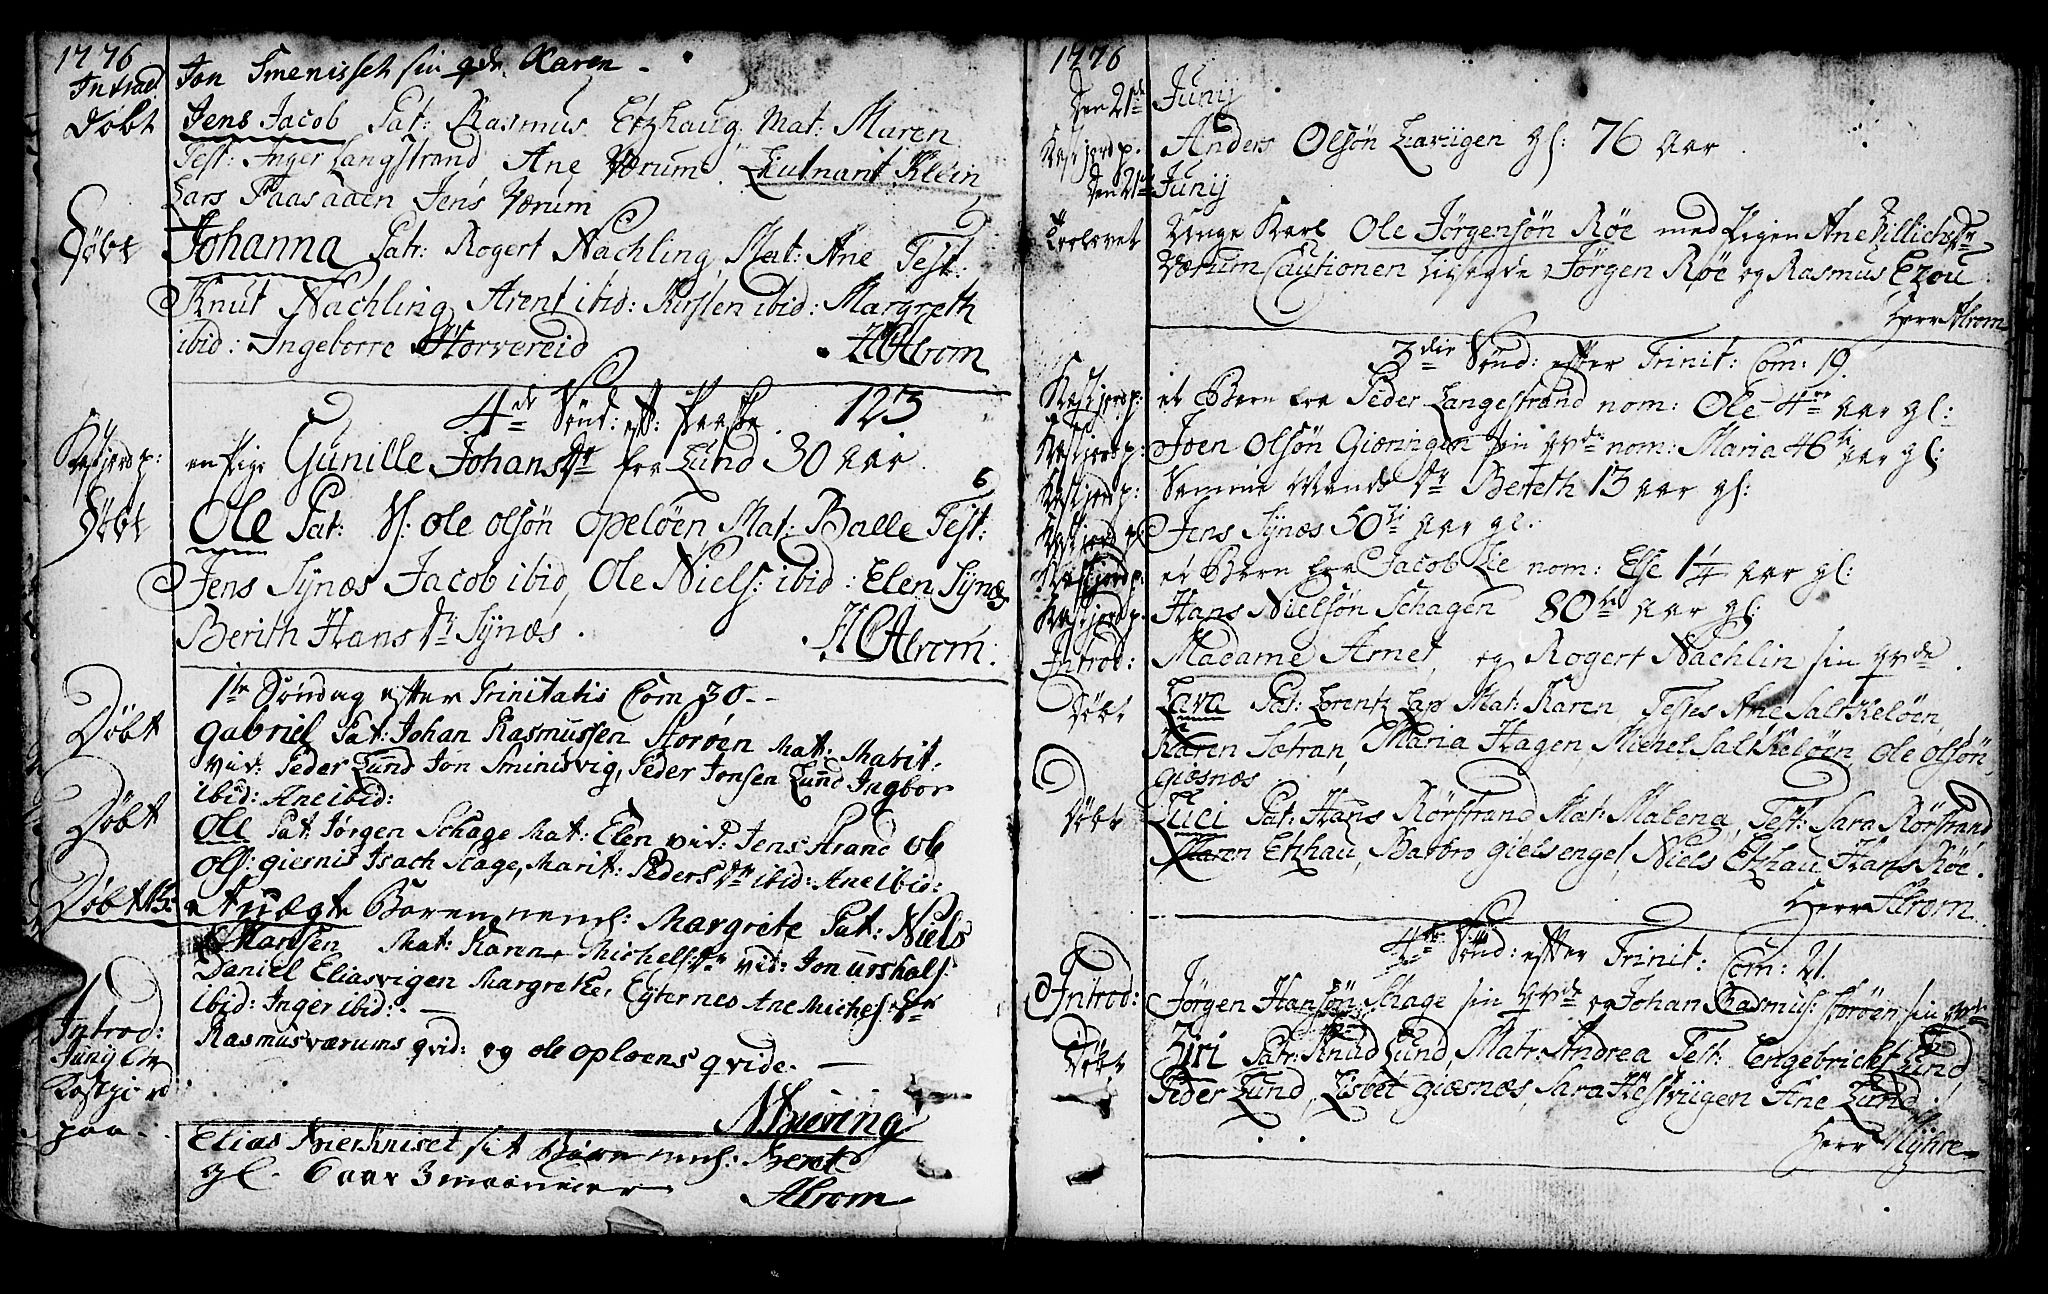 1776
Introd Jon Smenisset sin qde Karen
Døbt Jens Jacob Pat: Rasmus Etzhaug Mat: Maren
Test: Inger Langstrand, Ane Værum. Lieutnant Klein
Lars Faasaaen Jens Værum
Døbt Johanna Patr: Rogert Nachling, Mat: Ane Test:
Knut Nachling, Arent ibid: Kirsten ibid: Margreth
ibid: Ingeborre Storvereid HCAlrom
4de Sønd: eft: Paaske 123
Kastjord p: en Pige Gunille Johans Dr fra Lund 30 aar
Døbt Ole Pat: Sl: Ole Olsøn Opeløen, Mat: Balle Test:
Jens Synæs Jacob ibid, Ole Niels: ibid: Elen Synæs
Berith Hans Dr Synæs. HCAlrom:
1te Søndag efter Trinitatis Com 30
Døbt Gabriel Pat: Johan Rasmussen Storøen Mat: Marit:
vid: Peder Lund Jon Sminisvig, Peder Jonsen Lund Ingbor
ibid: Ane ibid:
Døbt Ole Pat: Jørgen Schage Mat: Elen vid: Jens Strand Ole
Ols: giernis Isach Skage, Marit: Peders Dr ibid: Ane ibid:
Døbt N: et uægte Baren neml: Margrete Pat: Niels
Hansen Mat: Karen Michels: Dr vid: Jon urshals
Daniel Eliasvigen Margrete, Eyternes Ane Michels: Dr
ibid: Inger ibid:
Introd: Rasmus værums qvid: og ole oploens qvide.
Juny
Kastji rd
paa
Elias sit Baren neml: Beret
gl. 6 aar 3 maaneder Alrom
1776
Den 21de Junij
Kastjord p: Anders Olsøn Laviigen gl: 76 aar
Den 21de Junij
Trolovet Unge Karl Ole Jørgensøn Røe med Pigen Ane Zillichs Dr
Værum Cautionen Jørgen Røe og Rasmus Ezou
Herr Alrom
3die Sønd: efter Trinit: Com: 19
Kastjord p: et Barn fra Peder Langestrand nom: Ole 4re aar gl:
Kastjord p: Joen Olsøn Giøningen sin qvde nom: Maria 46 aar gl:
Kastjord p: Samme Mands Dr Bereth 13 aar gl:
Kastjord p: Jens Synæs 50 aar gl:
Kastjord p: et Barn fra Jacob Lie nom: Else 1 1/4 aar gl:
Kastjord p: Hans Nielsøn Schagen 80 aar gl:
Introd: Madame Arnet, og Rogert Nachlin sin qvde
Døbt Lava Pat: Lorentz Lap Mat: Karen, Testes Ane Saltkeløen,
Karen Sætran, Maria Hagen, Michel Saltkeløen, Ole Olsøn
Giøsnæs
Døbt Lici Pat: Hans Rørstrand Mat: Malena, Test: Sara Rørstrand
Maren Etzhau, Barbro gielsengel, Niels Etzhau, Hans Røe.
Herr Alrom
4de Sønd: efter Trinit: Com: 21
Introd: Jørgen Hansøn Schage sin qvde og Johan Rasmus: storøen sin qvde
Døbt Ziri Patr: Knud Lund, Matr: Andrea Test: Engebricht Lund
Peder Lund, Lisbet giæsnæs, Sara Hestviigen Ane Lund
Herr Myhre